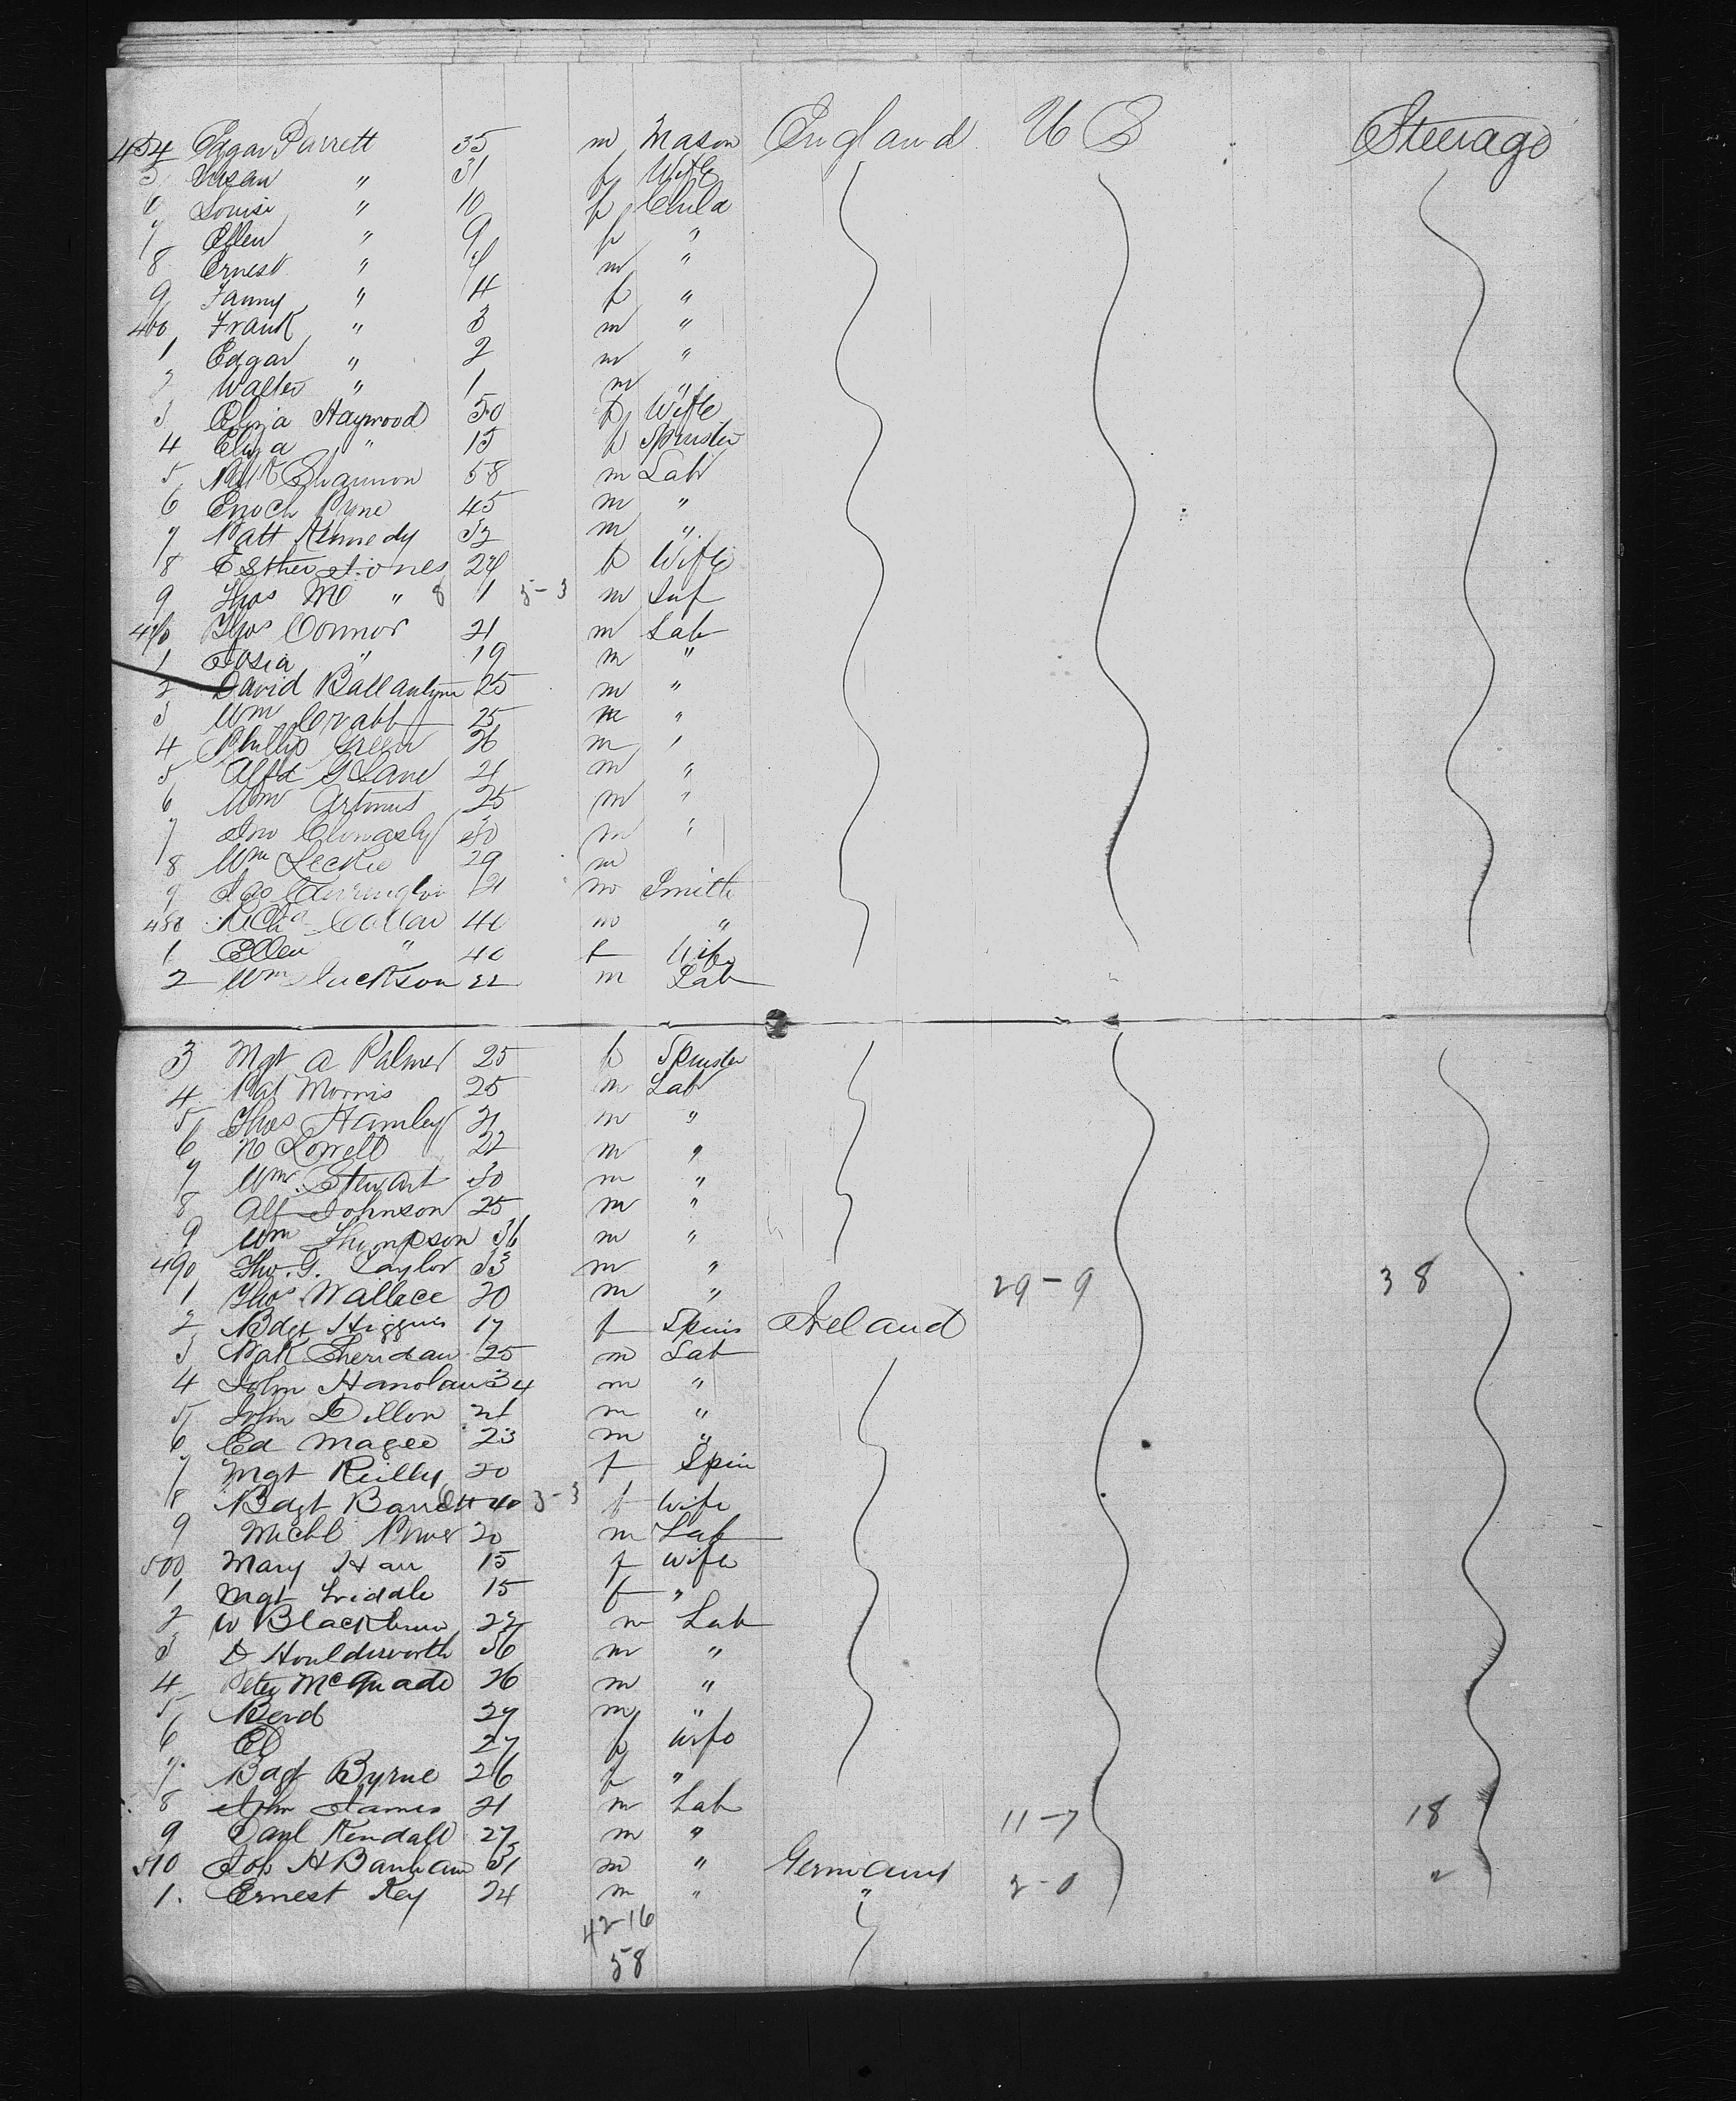 454 Edgar Parrett 35 m Mason England U S Steerage
5 Susan " 31 f Wife
6 Louisi " 10 f Child
7 Ellen " 9 f "
8 Ernest " 7 m "
9 Fanny " 4 f "
460 Frank " 3 m "
1 Edgar " 2 m "
2 Walter " 1 m "
3 Eliza Haywood 50 f Wife
4 Eliza " 15 f Spinster
5 Shannon 58 m Lab
6 Enoch Pyne 45 m "
7 Patt Kennedy 32 m "
8 Esther Jones 24 f Wife
9 Thos Mc " 8 1 5-3 m Inf
470 Thos Connor 21 m Lab
1 Josia " 19 m "
2 David Ballantyne 25 m "
3 Wm Crabb 25 m "
4 Phillip Green 26 m "
5 Alfd G Lane 21 m "
6 Wm Artmus 25 m "
7 Jno 30 m "
8 Wm Leckie 29 m
9 Jas Carrington 21 m Smith
480 Richd Collar 40 m "
1 Ellen " 40 f Wife
2 Wm Jackson 22 m Lab
3 Mgt A Palmer 25 f Spinster
4 Pat Morris 25 m Lab
5 Thos Hamley 21 m "
6 N Lowell 22 m "
7 Wm Stewart 30 m "
8 Alf Johnson 25 m "
9 Wm Thompson 36 m "
490 Tho. G. Taylor 33 m "
1 Thos Wallace 20 m " 29-9 38
2 Bdgt Higgins 17 f Spins Ireland
3 Pak Sheridan 25 m Lab
4 John Hanolan 34 m "
5 John Dillon 21 m "
6 Ed Magee 23 m "
7 Mgt Reilly 20 f Spin
8 Bdgt Barrett 40 3-3 f Wife
9 Michl Power 20 m Lab
500 Mary Harr 15 f Wife
1 Mgt Liddle 15 f "
2 W Blackburn 22 m Lab
3 D Houldsworth 36 m "
4 Peter McQuade 26 m "
5 Bend 29 m "
6 Ed 27 f Wife
7 Bdgt Byrne 26 f "
8 John James 21 m Lab
9 Danl Kendall 27 m " 11-7 18
510 Jos H Banham 31 m " Germany
1. Ernest Key 24 m " " 2-0 "
42-16
58